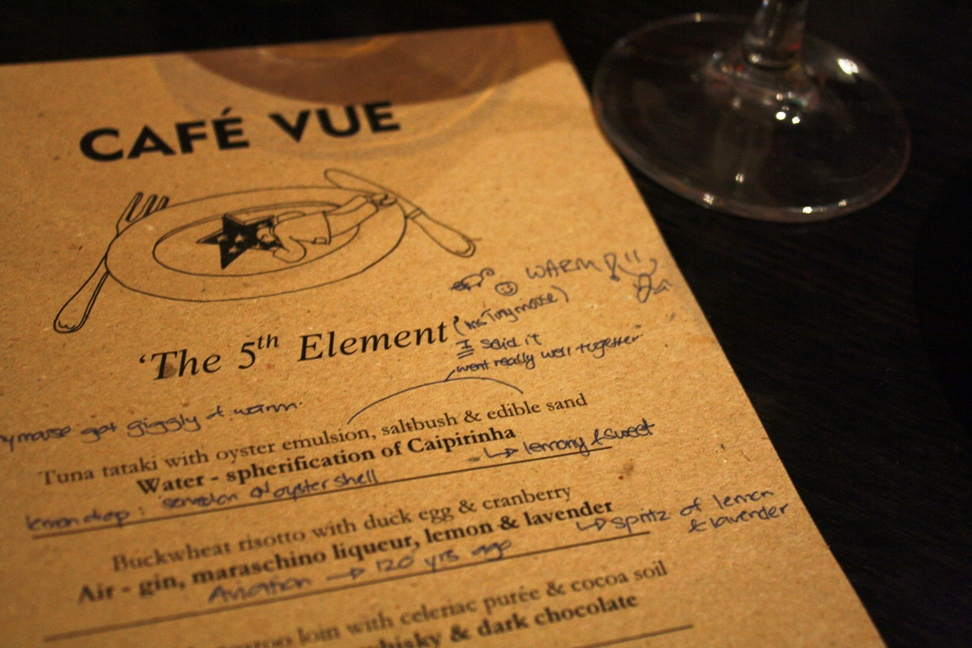 CAFÉ VUE
WARM !!
(Ms Tinymouse)
I said it
went really well together
'The 5th Element'
ymouse got giggly & warm.
Tuna tataki with oyster emulsion, saltbush & edible sand
Water - spherification of Caipirinha
↳ lemony & sweet
lemon drop: served on oyster shell
Buckwheat risotto with duck egg & cranberry
Air - gin, maraschino liqueur, lemon & lavender
↳ spritz of lemon
& lavender
Aviation → 120 yrs ago
loin with celeriac purée & cocoa soil
whisky & dark chocolate